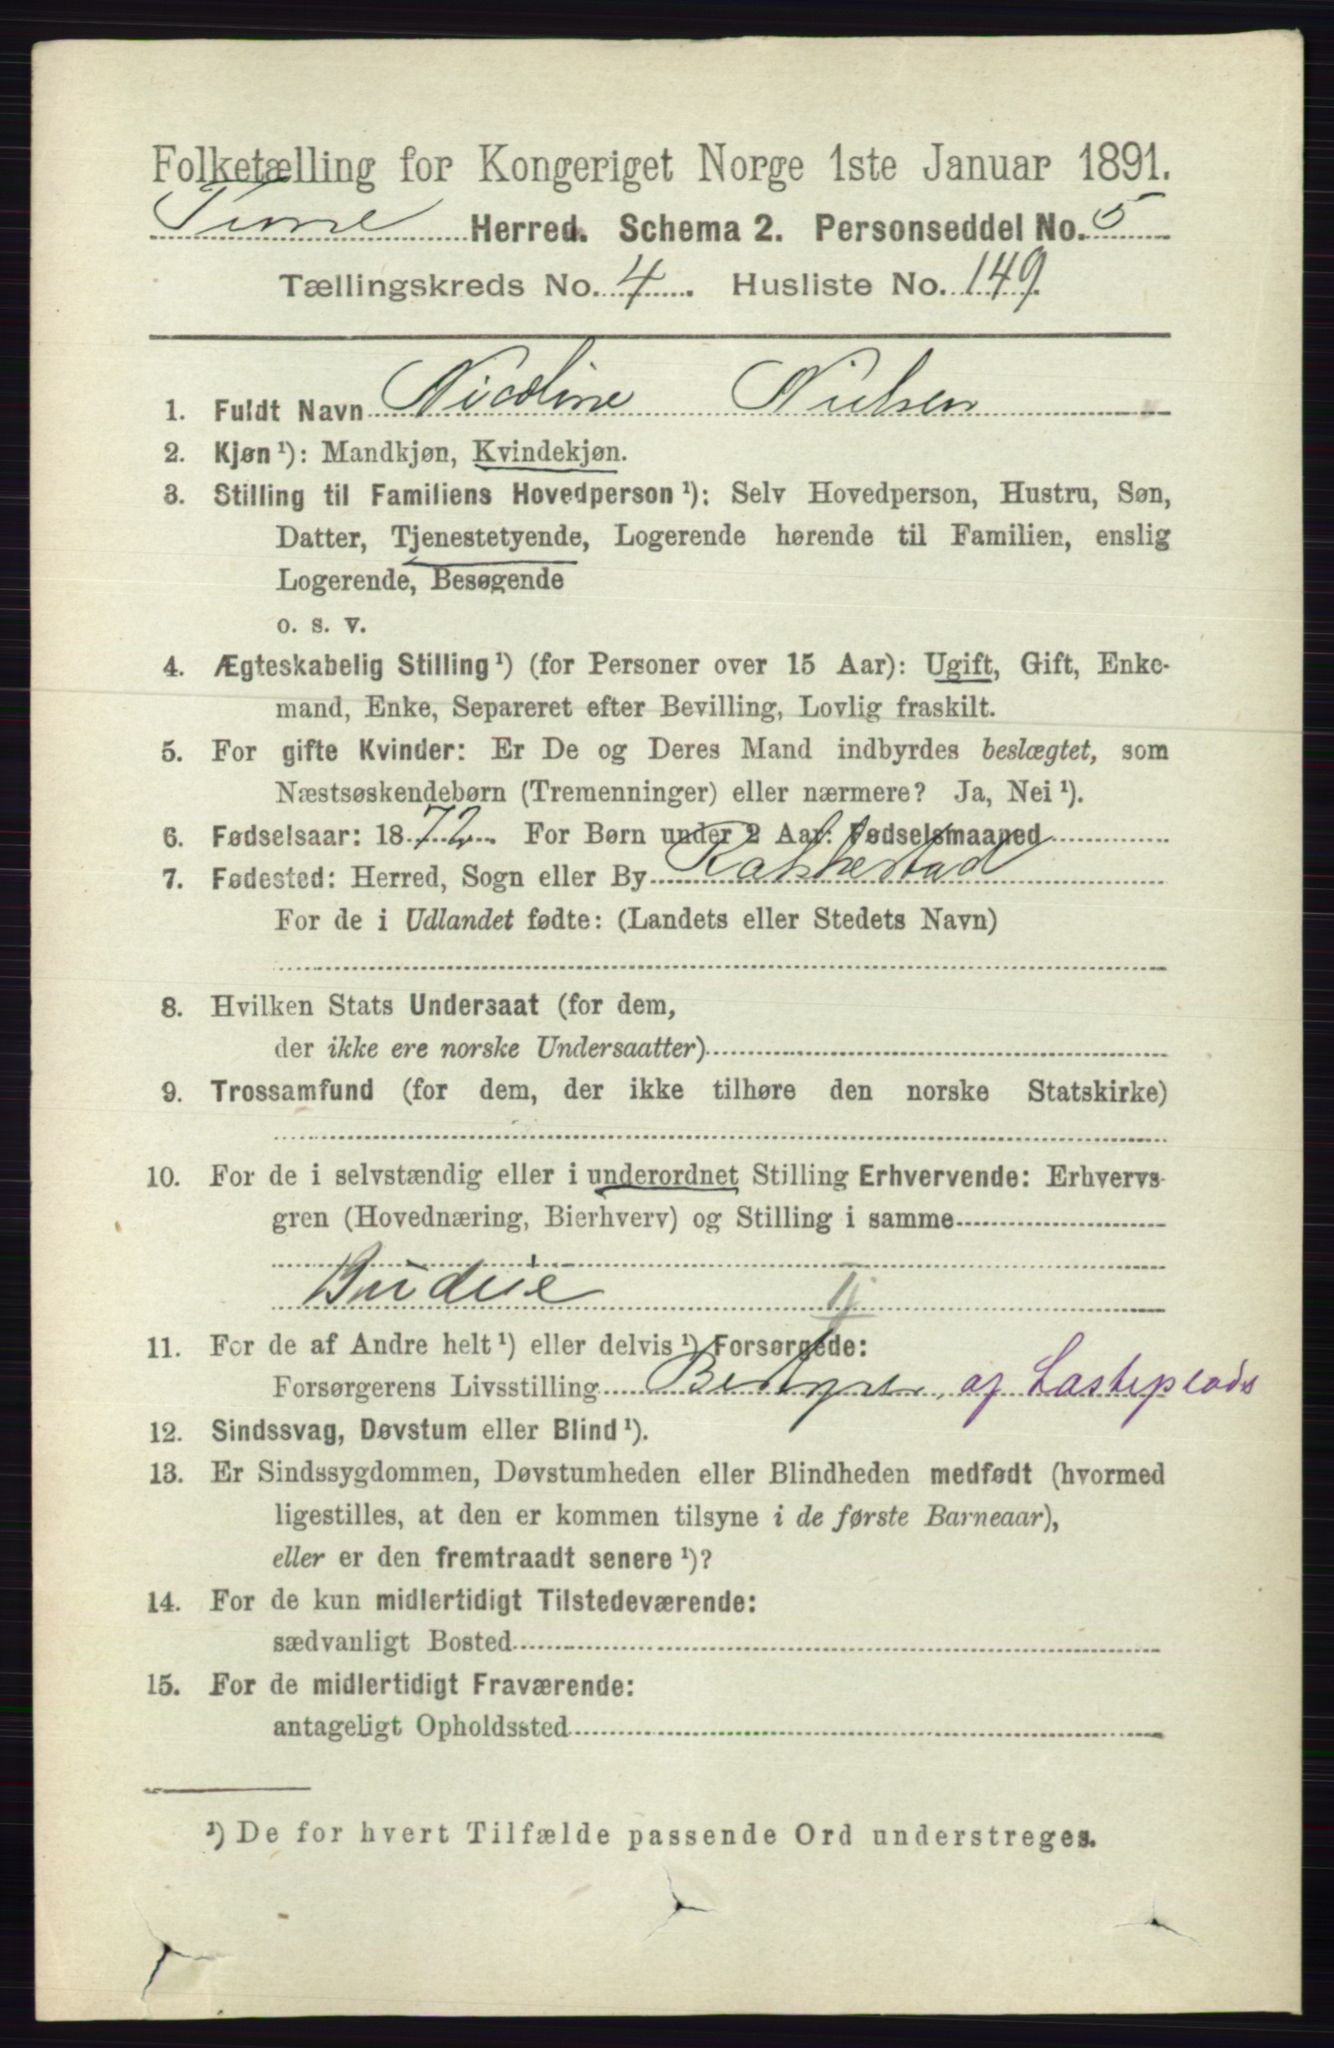 Folketælling for Kongeriget Norge 1ste Januar 1891.
Tune Herred. Schema 2. Personseddel No. 5
Tællingskreds No. 4. Husliste No. 149.
1. Fuldt Navn Nicoline Nielsen
2. Kjøn ¹): Mandkjøn, Kvindekjøn.
3. Stilling til Familiens Hovedperson ¹): Selv Hovedperson, Hustru, Søn,
Datter, Tjenestetyende, Logerende hørende til Familien, enslig
Logerende, Besøgende
o. s. v.
4. Ægteskabelig Stilling ¹) (for Personer over 15 Aar): Ugift, Gift, Enke-
mand, Enke, Separeret efter Bevilling, Lovlig fraskilt.
5. For gifte Kvinder: Er De og Deres Mand indbyrdes beslægtet, som
Næstsøskendebørn (Tremenninger) eller nærmere? Ja, Nei ¹).
6. Fødselsaar: 1872. For Børn under 2 Aar: Fødselsmaaned
7. Fødested: Herred, Sogn eller By Rakkestad
For de i Udlandet fødte: (Landets eller Stedets Navn)
8. Hvilken Stats Undersaat (for dem,
der ikke ere norske Undersaatter)
9. Trossamfund (for dem, der ikke tilhøre den norske Statskirke)
10. For de i selvstændig eller i underordnet Stilling Erhvervende: Erhvervs-
gren (Hovednæring, Bierhverv) og Stilling i samme
Budeie
11. For de af Andre helt ¹) eller delvis ¹) Forsørgede:
Forsørgerens Livsstilling Bestyrer, af Lasteplads
12. Sindssvag, Døvstum eller Blind ¹).
13. Er Sindssygdommen, Døvstumheden eller Blindheden medfødt (hvormed
ligestilles, at den er kommen tilsyne i de første Barneaar),
eller er den fremtraadt senere ¹)?
14. For de kun midlertidigt Tilstedeværende:
sædvanligt Bosted
15. For de midlertidigt Fraværende:
antageligt Opholdssted
¹) De for hvert Tilfælde passende Ord understreges.